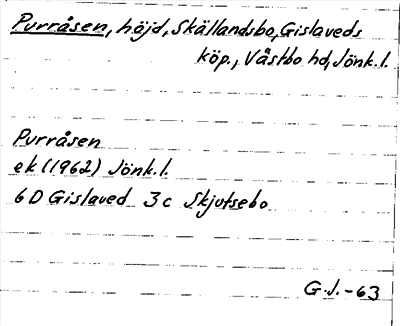 Purråsen, höjd, Skällandsbo, Gislaveds
köp., Västbo hd, Jönk.l.
Purråsen
ek (1962) Jönk.l.
6D Gislaved 3c Skjutsebo
G.J.-63